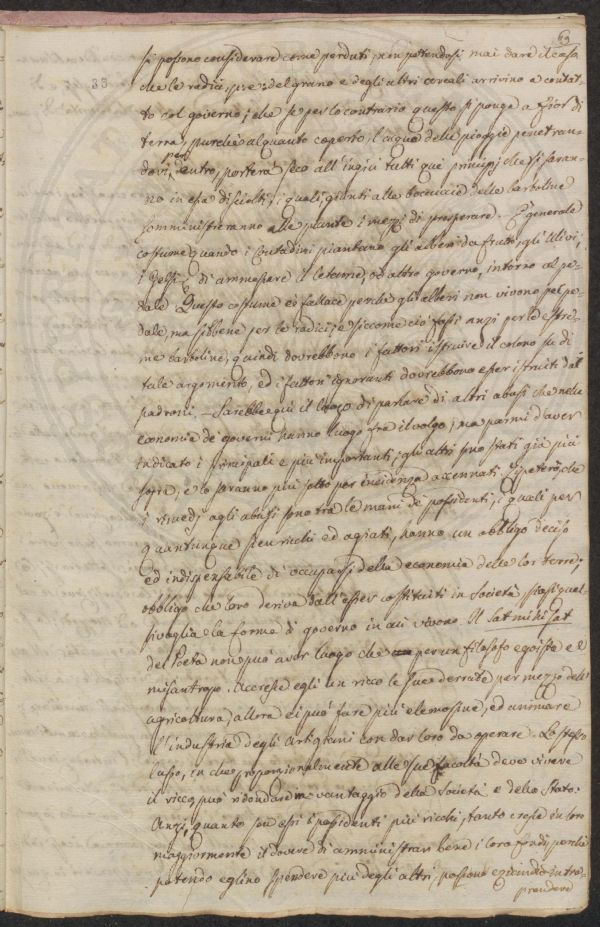 69
si possono considerare come perduti, non potendosi mai dare il caso
che le radici, p. e. del grano e degli altri cereali arrivino a contat-
38
to col governo; che se per lo contrario questo si ponga a fior di
terra, purchè alquanto coperto, l'acqua delle pioggie penetran-
dovi per entro, porterà seco all'ingiù tutti que' principj, che si saran-
no in essa disciolti, i quali, giunti alle boccuccie delle barboline
somministreranno alle piante i mezzi di prosperare. È generale
costume, quando i Contadini piantano gli alberi da frutto, gli Ulivi,
i Gelsi &c. di ammassare il letame, od altro governo, intorno al pe-
dale. Questo costume è fallace perchè gli alberi non vivono pel pe-
dale, ma sibbene per le radici; e siccome ciò fassi anzi per le estre-
me barboline, quindi dovrebbono i fattori istruire il colono su di
tale argomento, ed i fattori ignoranti dovrebbono esser istruiti dai
padroni. Sarebbe qui il luogo di parlare di altri abusi che nelle
economie de' governi hanno luogo fra il volgo; ma parmi d'aver
indicato i principali e più importanti; gli altri sono stati già più
sopra, e lo saranno più sotto per incidenza accennati. Ripeterò, che
i rimedj agli abusi sono tra le mani de' possidenti, i quali per
quantunque sieno ricchi ed agiati, hanno un obbligo deciso
ed indispensabile di occuparsi della economia delle lor terre;
obbligo che loro deriva dall'esser costituiti in Società, siasi qual-
sivoglia la forma di governo in cui vivono. Il Sat mihi Sat
del Poeta non può aver luogo che per un filosofo egoista e
misantropo. Accresce egli un ricco le sue derrate per mezzo dell'
agricoltura, allora ei può fare più elemosine, ed animare
l'industria degli Artigiani con dar loro da operare. Lo stesso
lusso, in che proporzionalmente alle sue facoltà deve vivere
il ricco, può ridondare in vantaggio della Società e dello Stato.
Anzi, quanto son essi i possidenti più ricchi, tanto cresce in loro
maggiormente il dovere di amministrar bene i loro fondi, perchè
potendo eglino spendere più degli altri, possono eziandio intra-
prendere